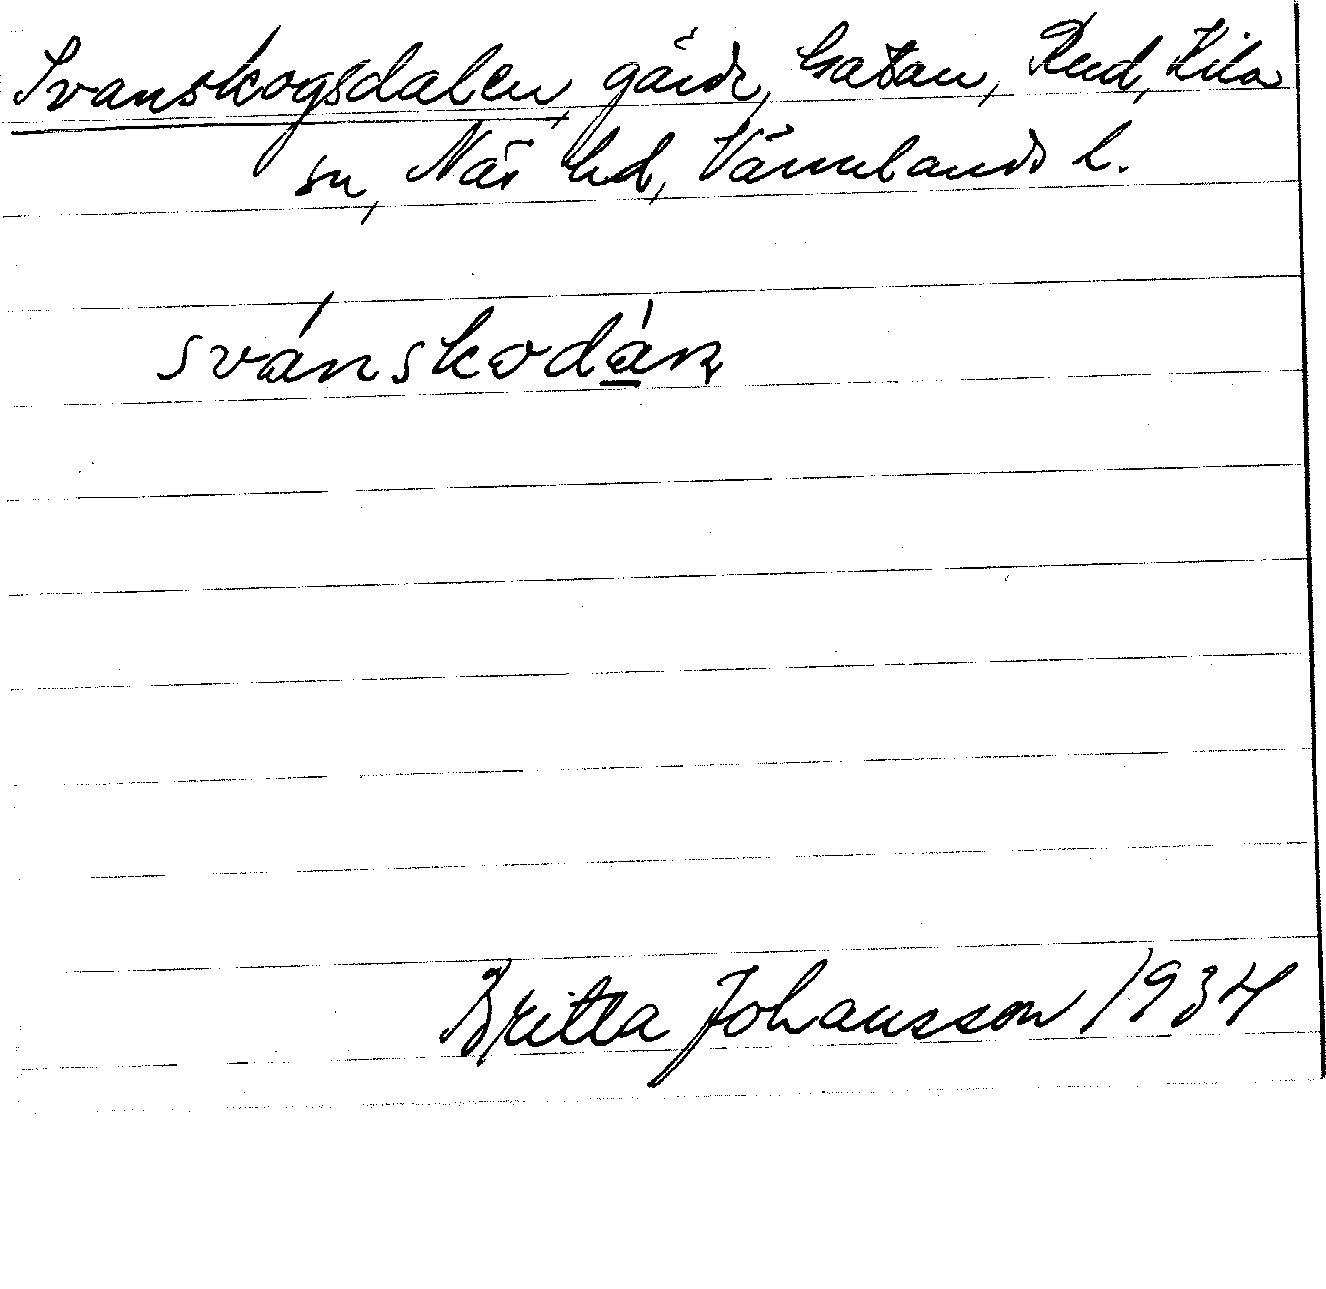 Svanskogsdalen, gärde, Gatan, Rud, Kila
sn, Näs hd, Värmlands l.
svánskodán
Britta Johansson 1934